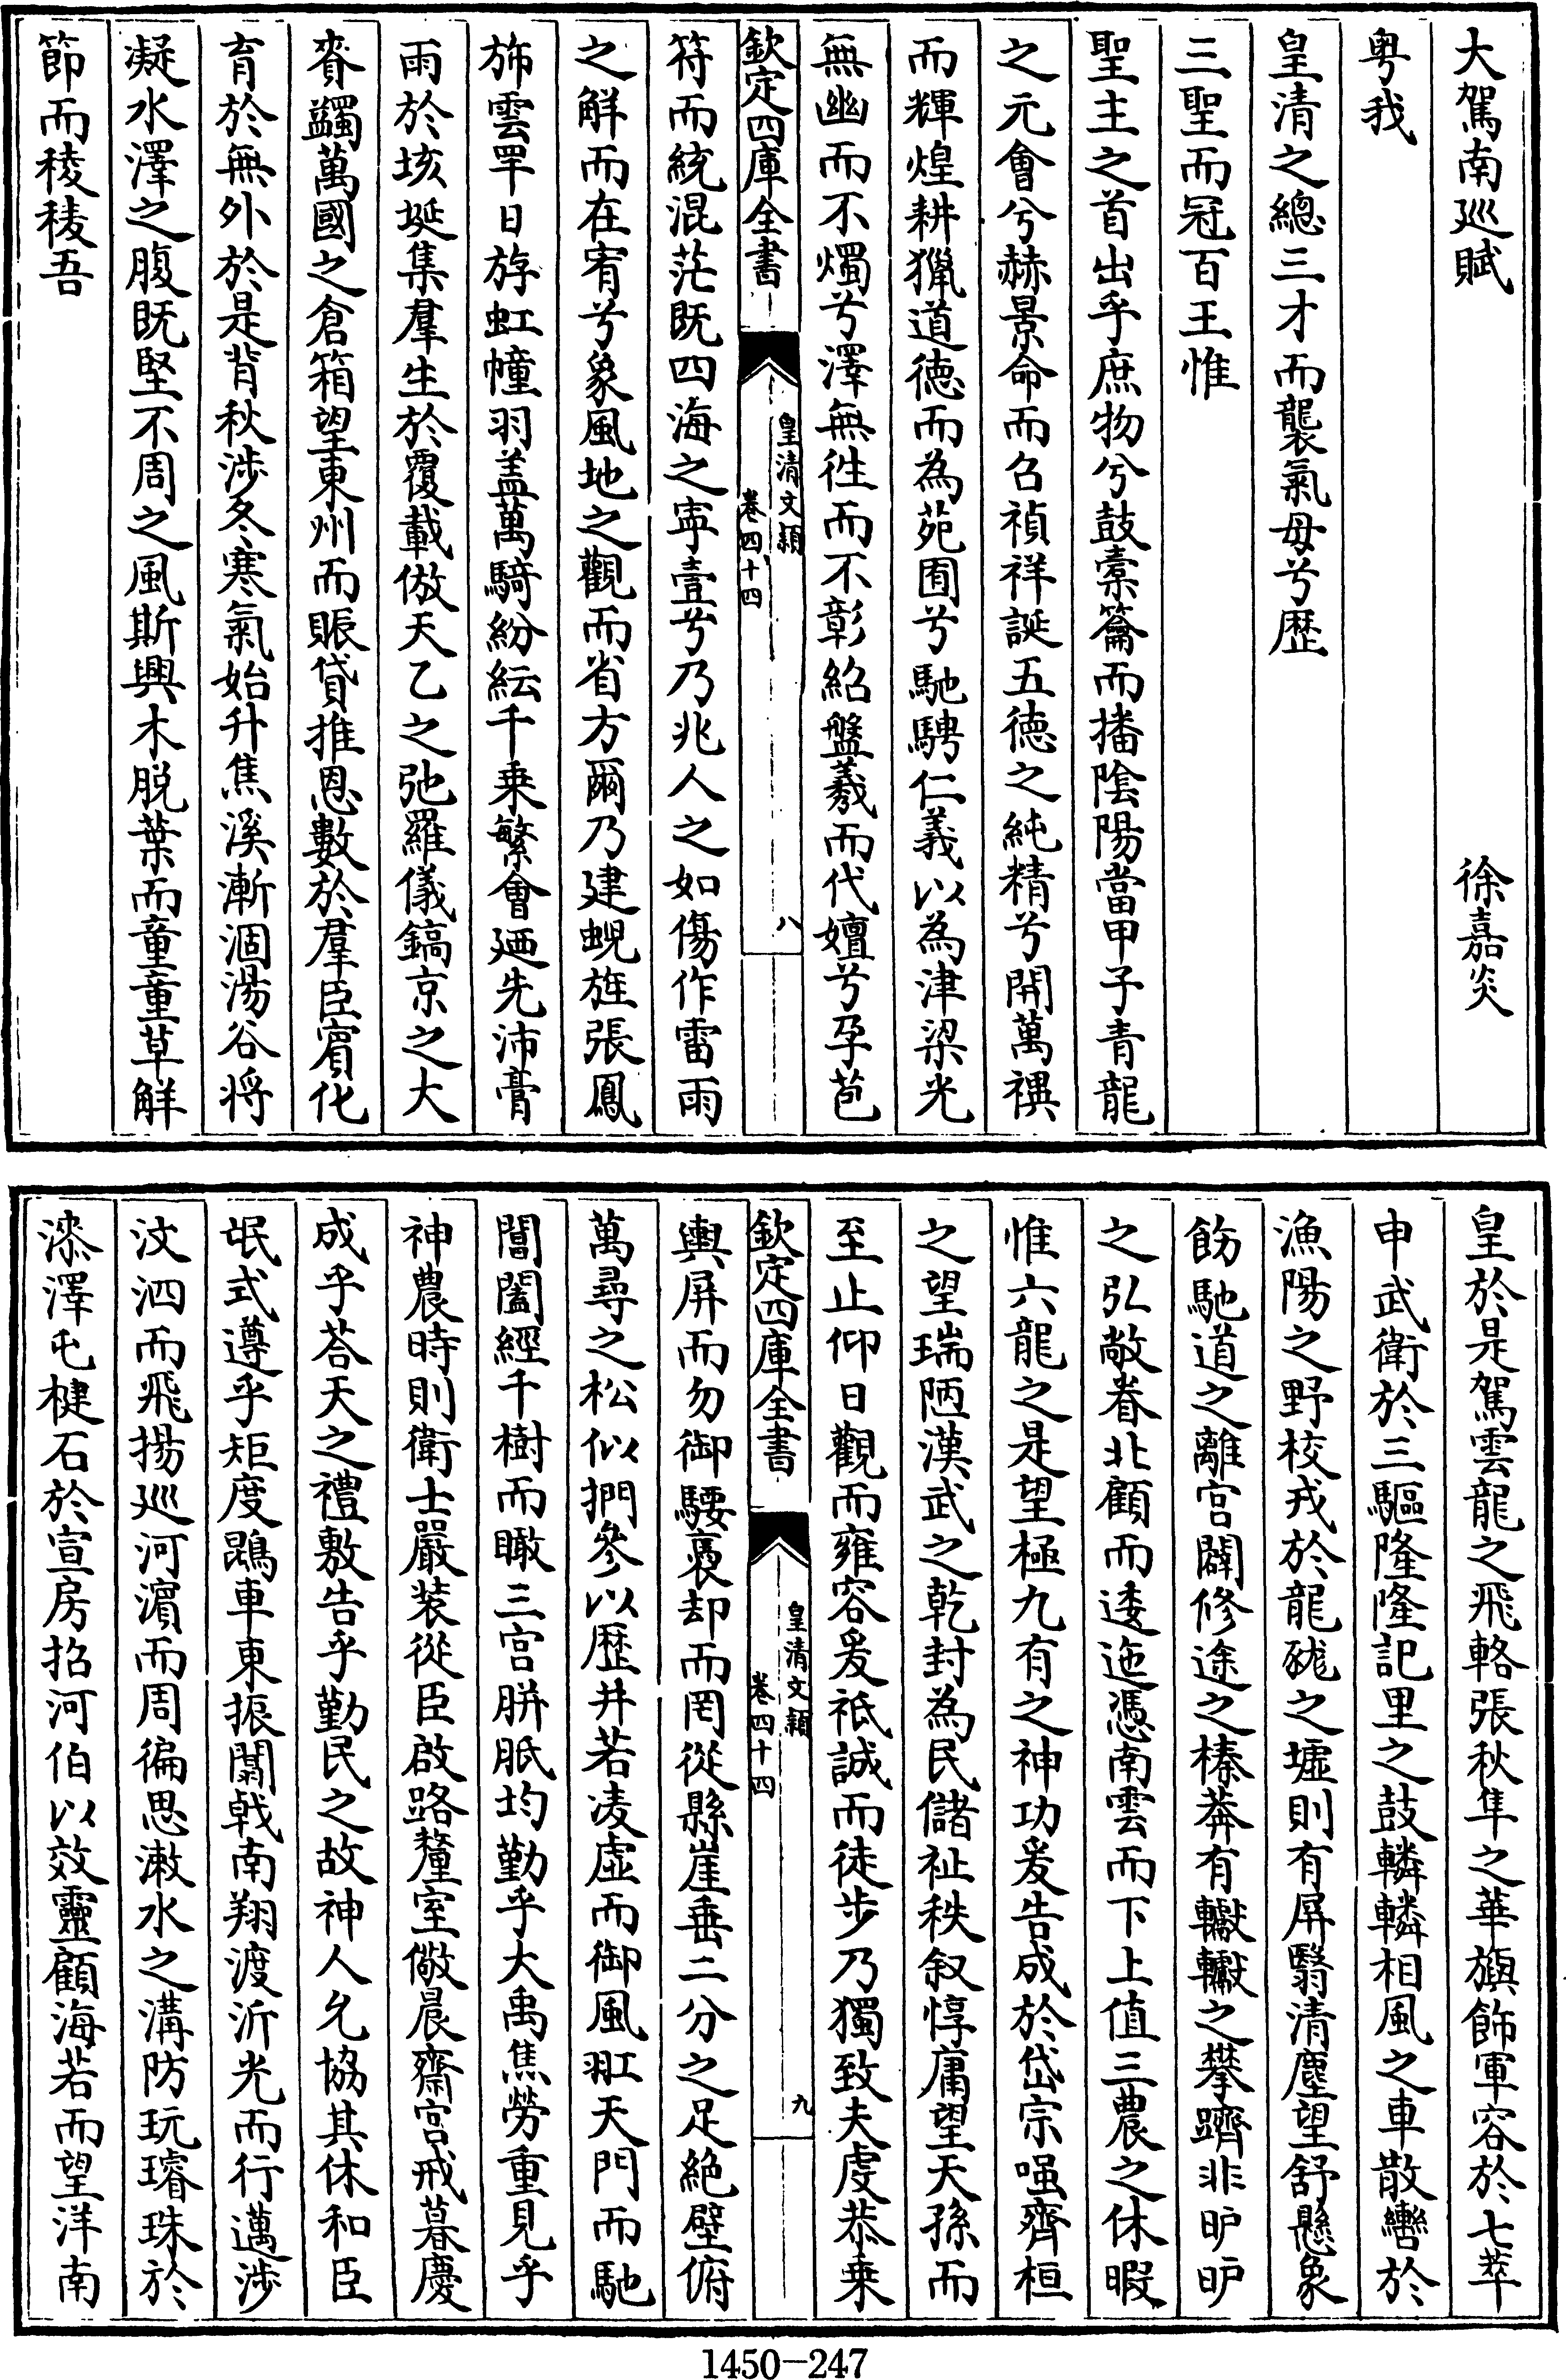 大駕南巡賦　徐嘉炎
粤我
皇清之總三才而襲氣母兮歴
三聖而冠百王惟
聖主之首出乎庶物兮鼓橐籥而播隂陽當甲子青龍
之元會兮赫景命而召禎祥誕五德之純精兮開萬禩
而輝煌耕獵道德而為苑囿兮馳騁仁義以為津梁光
無幽而不燭兮澤無徃而不彰紹盤羲而代嬗兮孕苞
欽定四庫全書
皇清文穎
卷四十四
八
符而統混茫既四海之寕壹兮乃兆人之如傷作雷雨
之解而在宥兮象風地之觀而省方爾乃建蜺旌張鳳
斾雲罕日斿虹幢羽盖萬騎紛紜千乗繁會廼先沛膏
雨於垓埏集羣生於覆載倣天乙之弛羅儀鎬京之大
賚蠲萬國之倉箱望東州而賑貸推恩數於羣臣賓化
育於無外於是背秋涉冬寒氣始升焦溪漸涸湯谷将
凝水澤之腹既堅不周之風斯興木脱葉而童童草解
節而稜稜吾
皇於是駕雲龍之飛輅張秋隼之華旟飾軍容於七萃
申武衛於三驅隆隆記里之鼓轔轔相風之車散轡於
漁陽之野校戎於龍硥之墟則有屏翳清塵望舒懸象
飭馳道之離宫闢修途之榛莽有轞轞之攀躋非昈昈
之弘敞眷北顧而逶迤憑南雲而下上值三農之休暇
惟六龍之是望極九有之神功爰告成於岱宗嗤齊桓
之望瑞陋漢武之乾封為民儲祉秩叙惇庸望天孫而
至止仰日觀而雍容爰祗誠而徒步乃獨致夫虔恭乗
欽定四庫全書
皇清文穎
卷四十四
九
輿屏而勿御騕褭却而罔從縣崖垂二分之足絶壁俯
萬尋之松似捫參以歴井若凌虚而御風䎺天門而馳
閶闔經千樹而瞰三宫胼胝均勤乎大禹焦勞重見乎
神農時則衛士嚴装從臣啟路釐室儆晨齋宫戒暮慶
成乎荅天之禮敷告乎勤民之故神人允協其休和臣
氓式遵乎矩度鵾車東振闟戟南翔渡沂光而行邁涉
汶泗而飛揚巡河濵而周徧思潄水之溝防玩璿珠於
漆澤屯楗石於宣房招河伯以效靈顧海若而望洋南
1450—247